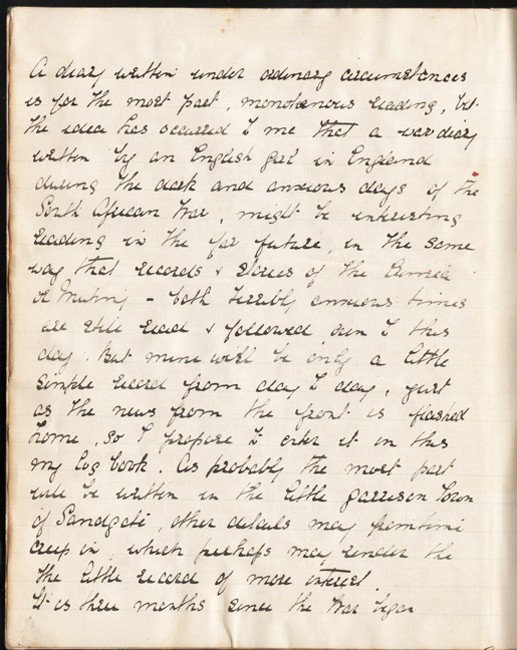 A diary written under ordinary circumstances
is for the most part, monotonous reading, but
the idea has occurred to me that a war diary
written by an English girl in England
during the dark and anxious days of the
South African War, might be interesting
reading in the far future, in the same
way that records & stories of the Crimea
or Mutiny – both terribly anxious times
are still read & followed even to this
day. But mine will be only a little
simple record from day to day, just
as the news from the front is flashed
home, so I propose to enter it in this
my log book. As probably the most part
will be written in the little garrison town
of Sandgate, other details may from time
creep in, which perhaps may render the
the little record of more interest.
It is three months since the War began